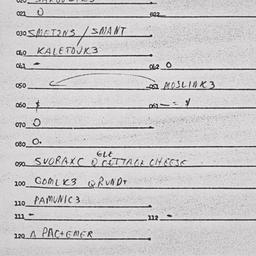 021 0 022
030 SMETZNS / SMANT
040 KALETOUK3
041 - 042 0
050 051 MOSLINK3
060 $
070 0
080 0.
GLE
090 SVORAXC Q COTTAGE CHEESE
100 GOMLK3 QRUNDT
110 PAMUNIC3
111 - 112 -
120 A PACTEMER